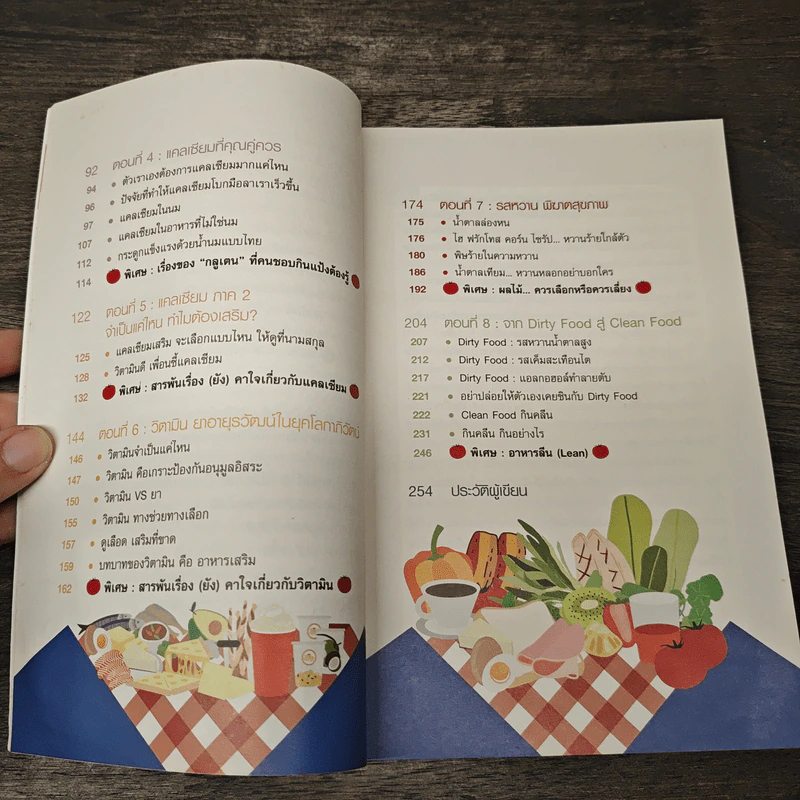 92 ตอนที่ 4 : แคลเซียมที่คุณคู่ควร
94 • ตัวเราเองต้องการแคลเซียมมากแค่ไหน
96 • ปัจจัยที่ทำให้แคลเซียมโบกมือลาเราเร็วขึ้น
97 • แคลเซียมในนม
107 • แคลเซียมในอาหารที่ไม่ใช่นม
112 • กระดูกแข็งแรงด้วยน้ำนมแบบไทย
114 พิเศษ : เรื่องของ “กลูเตน” ที่คนชอบกินแป้งต้องรู้
122 ตอนที่ 5 : แคลเซียม ภาค 2
จำเป็นแค่ไหน ทำไมต้องเสริม?
125 • แคลเซียมเสริม จะเลือกแบบไหน ให้ดูที่นามสกุล
128 • วิตามินดี เพื่อนซี้แคลเซียม
132 พิเศษ : สารพันเรื่อง (ยัง) คาใจเกี่ยวกับแคลเซียม
144 ตอนที่ 6 : วิตามิน ยาอายุรวัฒน์ในยุคโลกาภิวัตน์
146 • วิตามินจำเป็นแค่ไหน
147 • วิตามิน คือเกราะป้องกันอนุมูลอิสระ
150 • วิตามิน VS ยา
155 • วิตามิน ทางช่วยทางเลือก
157 • ดูเลือด เสริมที่ขาด
159 • บทบาทของวิตามิน คือ อาหารเสริม
162 พิเศษ : สารพันเรื่อง (ยัง) คาใจเกี่ยวกับวิตามิน
174 ตอนที่ 7 : รสหวาน พิฆาตสุขภาพ
175 • น้ำตาลล่องหน
176 • ไฮ ฟรักโทส คอร์น ไซรัป... หวานร้ายใกล้ตัว
180 • พิษร้ายในความหวาน
186 • น้ำตาลเทียม... หวานหลอกอย่าบอกใคร
192 พิเศษ : ผลไม้... ควรเลือกหรือควรเลี่ยง
204 ตอนที่ 8 : จาก Dirty Food สู่ Clean Food
207 • Dirty Food : รสหวานน้ำตาลสูง
212 • Dirty Food : รสเค็มสะเทือนไต
217 • Dirty Food : แอลกอฮอล์ทำลายตับ
221 • อย่าปล่อยให้ตัวเองเคยชินกับ Dirty Food
222 • Clean Food กินคลีน
231 • กินคลีน กินอย่างไร
246 พิเศษ : อาหารลีน (Lean)
254 ประวัติผู้เขียน